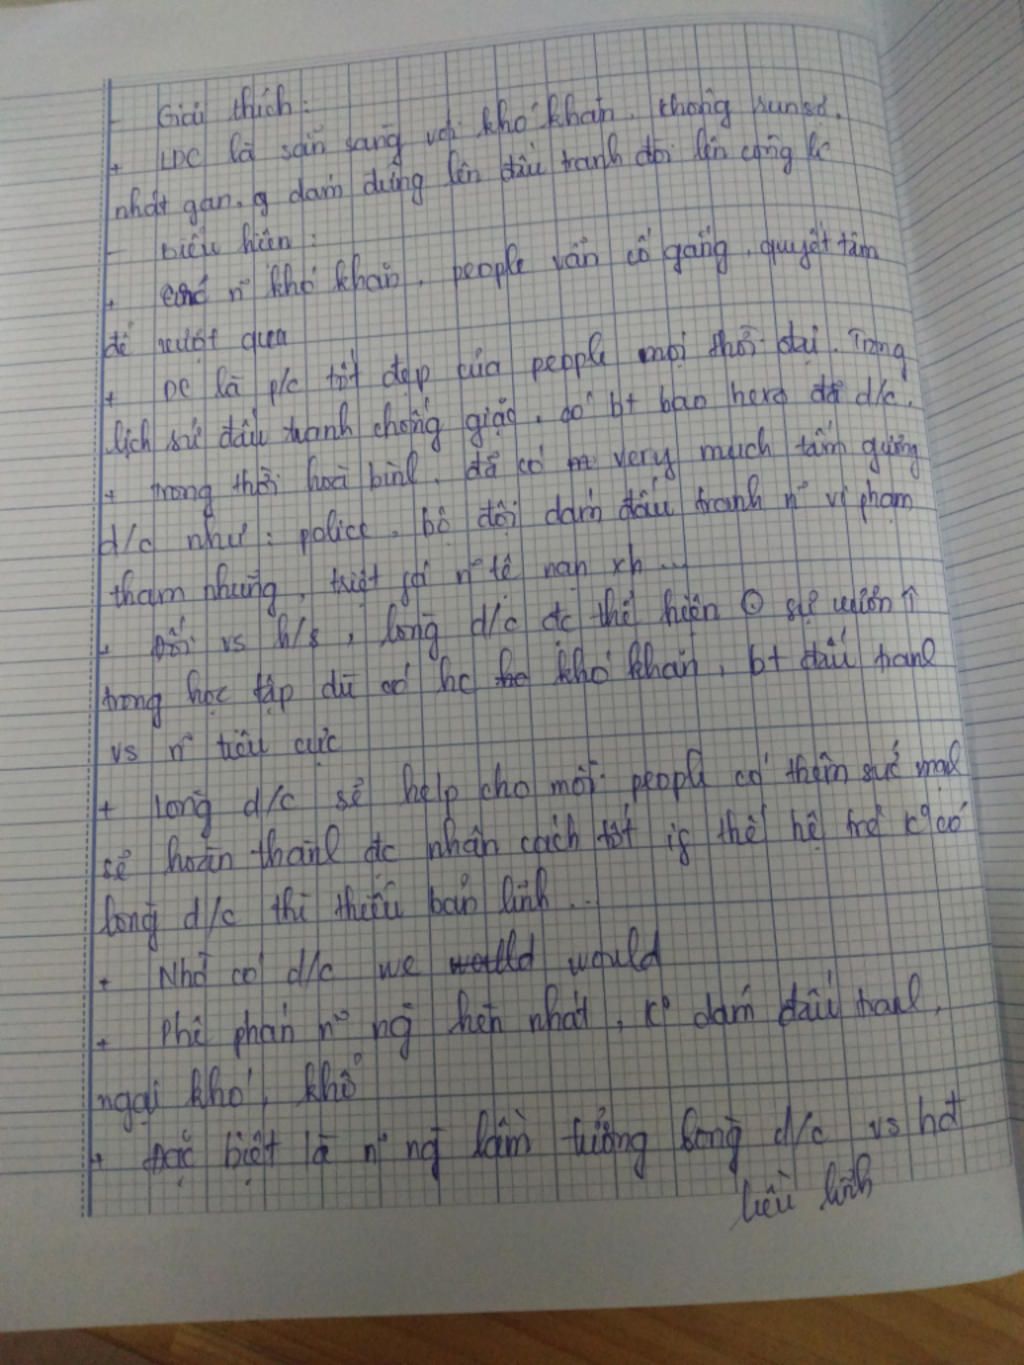 - Giải thích:
+ LDC là sẵn sàng với khó khăn, không
nhát gan, dám đứng lên đấu tranh đòi lên công lí
- biểu hiện:
+ có n~ khó khăn, people vẫn cố gắng, quyết tâm
để vượt qua
+ DC là p/c tốt đẹp của people mọi thời đại. Trong
lịch sử đấu tranh chống giặc, có bt bao hero đã d/c.
+ trong thời hoà bình, đã có very much tấm gương
d/c như: police, bộ đội dám đấu tranh n~ vi phạm
tham nhũng, triệt n~ tệ nạn xh...
+ Đối vs h/s, lòng d/c đc thể hiện sự vươn ↑
trong học tập dù có hc khó khăn, bt đấu tranh
vs n~ tiêu cực
+ lòng d/c sẽ help cho mỗi people có thêm sức mạnh
sẽ hoàn thành đc nhân cách tốt if thế hệ trẻ k° có
lòng d/c thì thiếu bản lĩnh...
+ Nhờ có d/c we would
+ Phê phán n~ ng hèn nhát, k° dám đấu tranh,
ngại khó, khổ
+ Đặc biệt là n~ ng lầm tưởng lòng d/c vs hđ
liều lĩnh